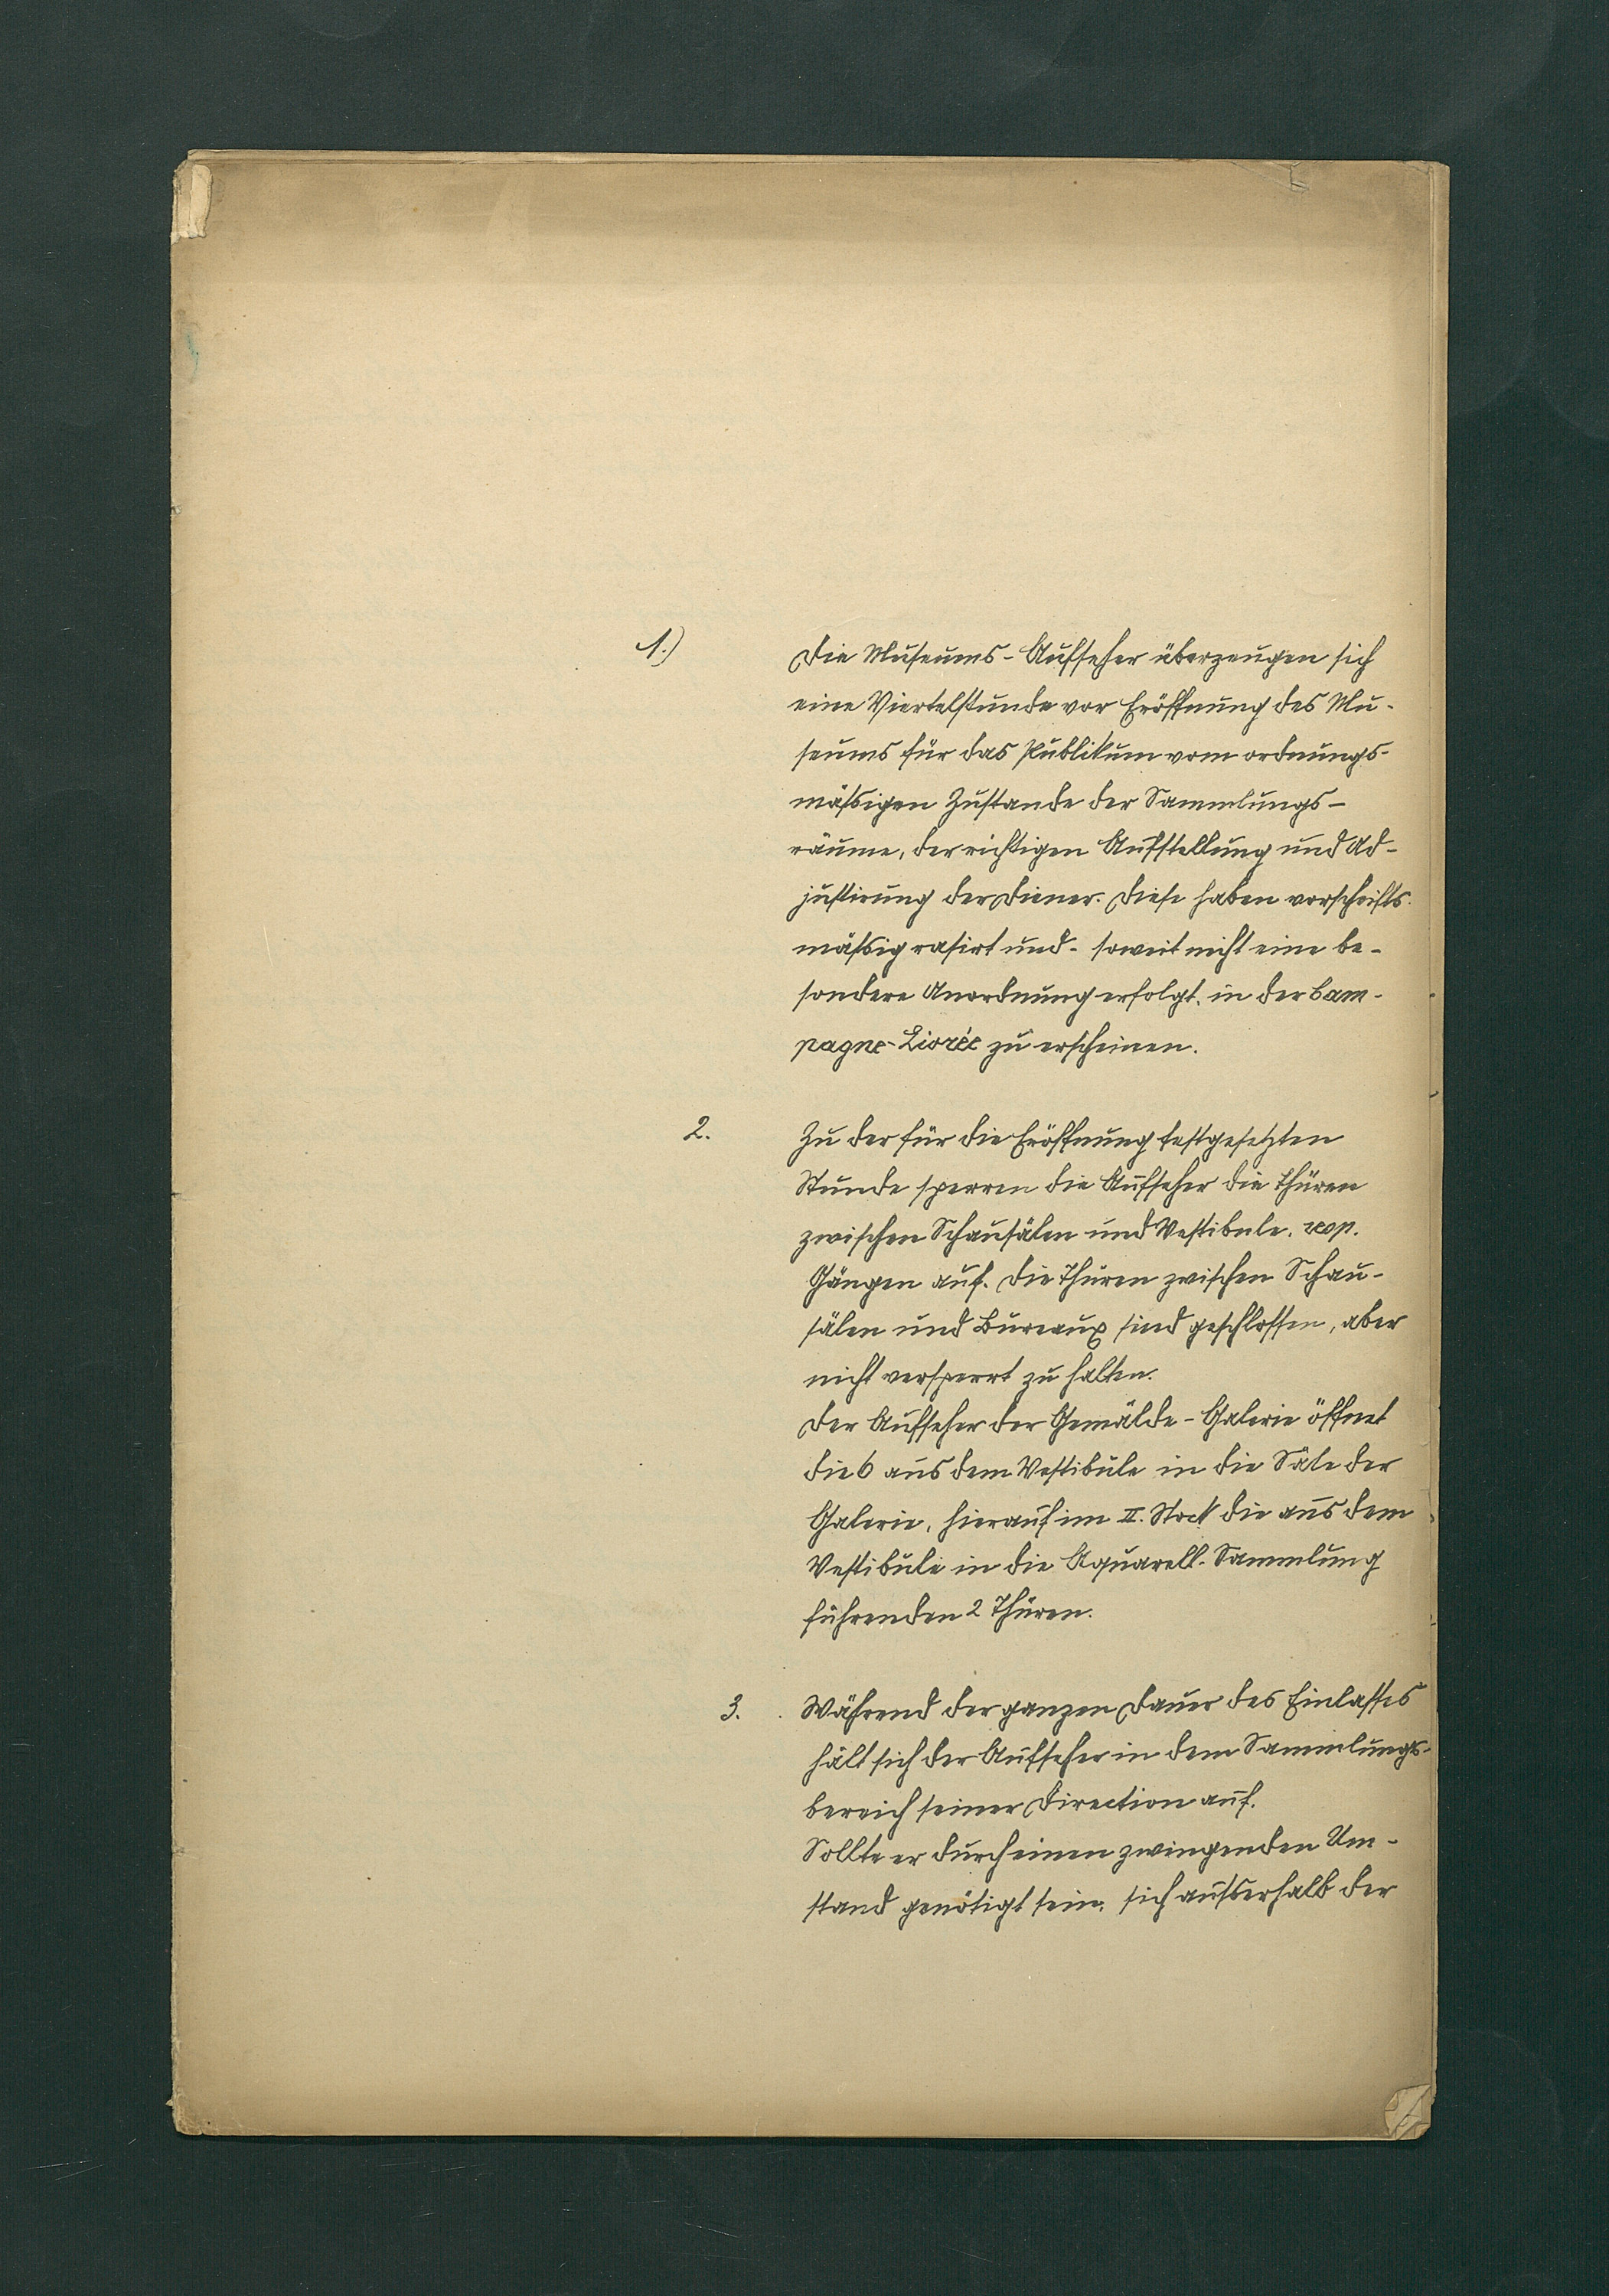 1.)
Die Museums-Aufseher überzeugen sich
eine Viertelstunde vor Eröffnung des Mu-
seums für das Publikum vom ordnungs-
mässigen Zustande der Sammlungs-
räume, der richtigen Aufstellung und Ad-
justirung der Diener. Diese haben vorschrifts-
mässig rasirt und - soweit nicht eine be-
sondere Anordnung erfolgt, in der Cam-
pagne-Livrée zu erscheinen.
2.
Zu der für die Eröffnung festgesetzten
Stunde sperren die Aufseher die Thüren
zwischen Schausälen und Vestibule, resp.
Gängen auf. Die Thüren zwischen Schau-
sälen und Bureaux sind geschlossen, aber
nicht versperrt zu halten.
Der Aufseher der Gemälde-Galerie öffnet
die 6 aus dem Vestibule in die Säle der
Galerie, hierauf im II. Stock die aus dem
Vestibule in die Aquarell-Sammlung
führenden 2 Thüren.
3.
Während der ganzen Dauer des Einlasses
hält sich der Aufseher in dem Sammlungs-
bereich seiner Direction auf.
Sollte er durch einen zwingenden Um-
stand genötigt sein, sich ausserhalb der